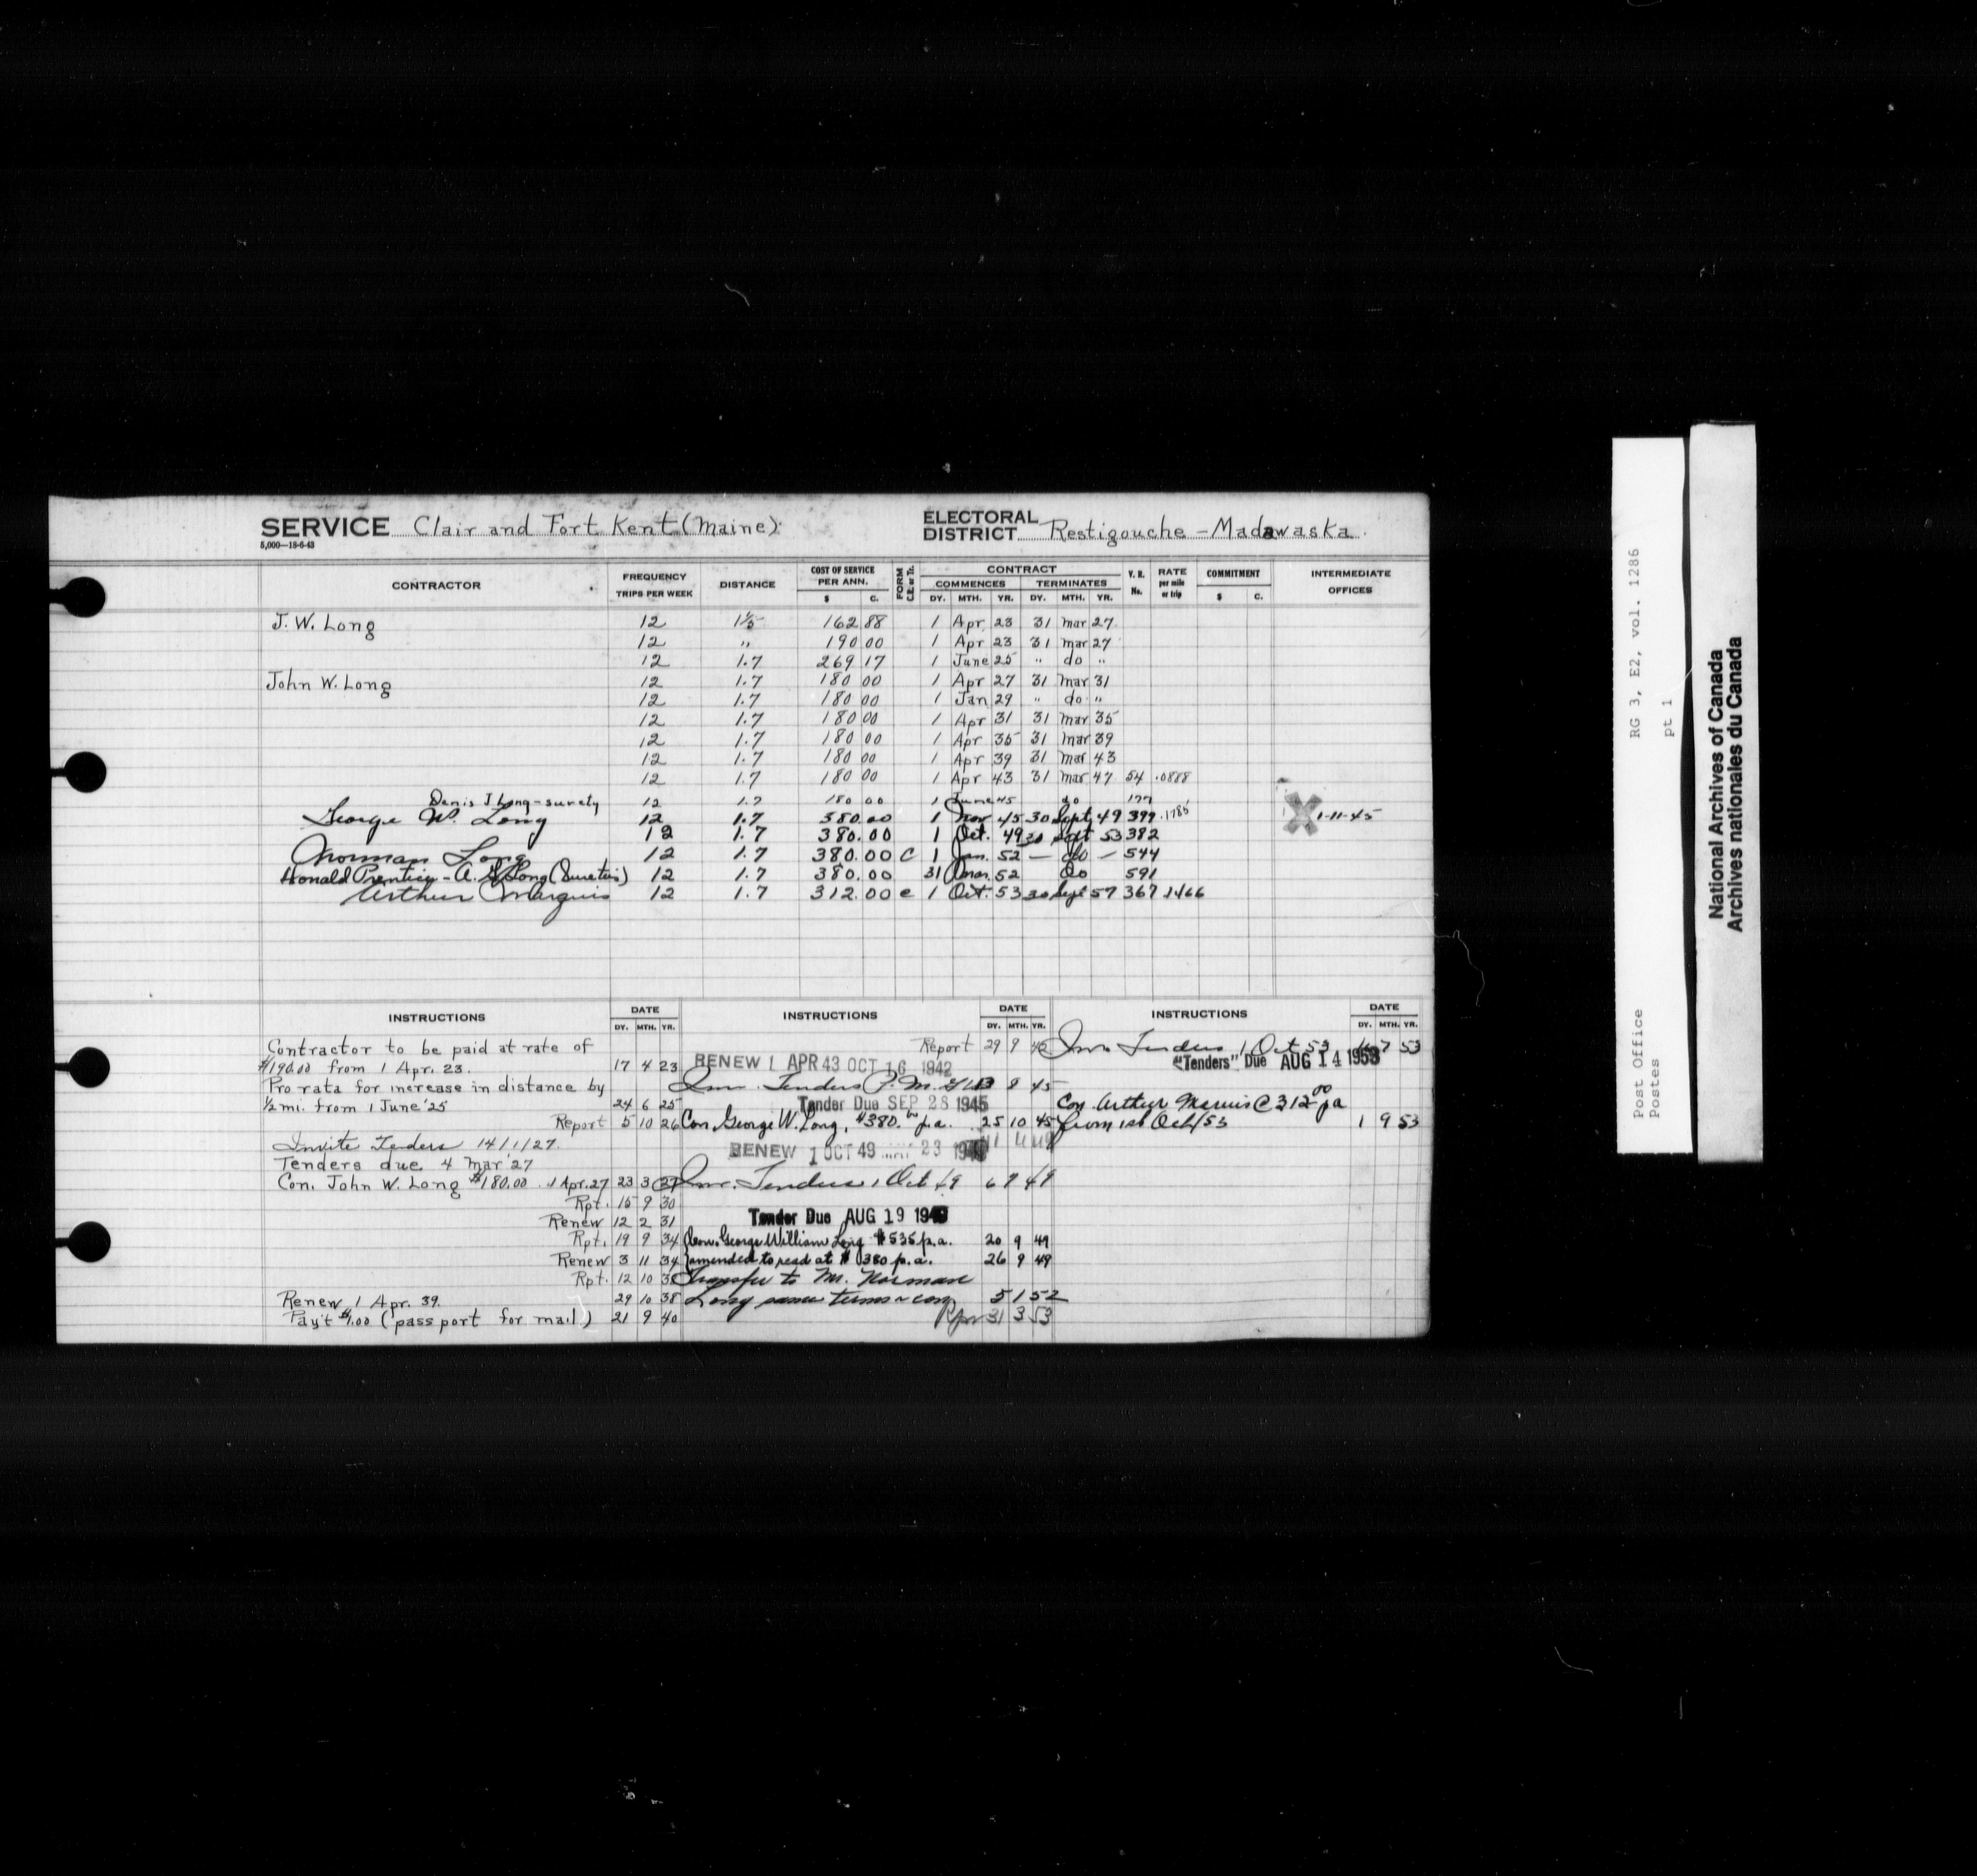 SERVICE Clair and Fort Kent (Maine)
5,000—18-6-43
ELECTORAL DISTRICT Restigouche - Madawaska
CONTRACTOR FREQUENCY TRIPS PER WEEK DISTANCE COST OF SERVICE PER ANN. $ C. FORM CONTRACT COMMENCES DY. MTH. YR. TERMINATES DY. MTH. YR. No. RATE per mile or trip COMMITMENT $ C. INTERMEDIATE OFFICES
J. W. Long 12 162 88 1 Apr 23 31 Mar 27
12 " 190 00 1 Apr 23 31 Mar 27
12 1.7 269 17 1 June 25 " do "
John W. Long 12 1.7 180 00 1 Apr 27 31 Mar 31
12 1.7 180 00 1 Jan 29 " do "
12 1.7 180 00 1 Apr 31 31 Mar 35
12 1.7 180 00 1 Apr 35 31 Mar 39
12 1.7 180 00 1 Apr 39 31 Mar 43
12 1.7 180 00 1 Apr 43 31 Mar 47 54 .0888
Denis J Long - surety 12 1.7 180 00 1 June 45 do 177
George W. Long 12 1.7 380.00 1 Nov 45 30 Sept 49 399 .1785 X 1-11-45
12 1.7 380.00 1 Oct. 49 30 Sept 53 382
Norman Long 12 1.7 380.00 C 1 Jan. 52 — do — 544
Donald Prentice - A. Long (Sureties) 12 1.7 380.00 31 Mar. 52 Do 591
Arthur Marquis 12 1.7 312.00 c 1 Oct. 53 30 Sept 57 367 .1466
INSTRUCTIONS DATE DY. MTH. YR.
Contractor to be paid at rate of
$190.00 from 1 Apr. 23. 17 4 23
Pro rata for increase in distance by
½ mi. from 1 June '25 24 6 25
Report 5 10 26
Invite Tenders 14/1/27
Tenders due 4 Mar '27
Con. John W. Long $180.00 1 Apr. 27 23 3 27
Rpt. 15 9 30
Renew 12 2 31
Rpt. 19 9 34
Renew 3 11 34
Rpt. 12 10 38
Renew 1 Apr. 39. 29 10 38
Pay't $1.00 (passport for mail) 21 9 40
INSTRUCTIONS DATE DY. MTH. YR.
Report 29 9 42
RENEW 1 APR 43 OCT 16 1942
Inv. Tenders P.M. 8 45
Tender Due SEP 28 1945
Con. George W. Long, $380.00 p.a. 25 10 45
RENEW 1 OCT 49 23
Inv. Tenders 1 Oct 49 6 7 49
Tender Due AUG 19 1949
Con. George William Long $535 p.a. 20 9 49
amended to read at $380 p.a. 26 9 49
Transfer to Mr. Norman
Long same terms & con 5 1 52
Rpt 31 3 53
INSTRUCTIONS DATE DY. MTH. YR.
Inv. Tenders 1 Oct 53 7 53
"Tenders" Due AUG 14 1953
Con Arthur Marquis @ 312.00 pa
from 1st Oct/53 1 9 53
RG 3, E2, vol. 1286
pt 1
Post Office
Postes
National Archives of Canada
Archives nationales du Canada